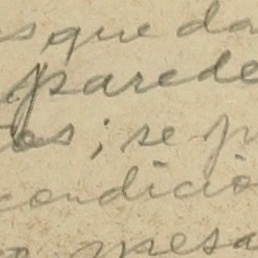 s que da
parede
os; se p
condicio
mesa